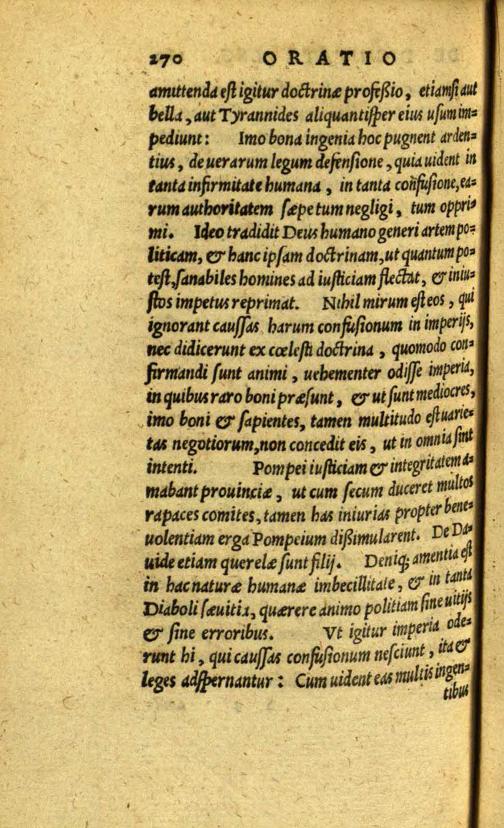 270 ORATIO
amittenda est igitur doctrinæ profeßio, etiamsi aut
bella, aut Tyrannides aliquantisper eius usum im=
pediunt: Imo bona ingenia hoc pugnent arden=
tius, de uerarum legum defensione, quia uident in
tanta infirmitate humana, in tanta cõfusione, ea=
rum authoritatem sæpe tum negligi, tum oppri=
mi. Ideo tradidit Deus humano generi artem po=
liticam, & hanc ipsam doctrinam, ut quantum po=
test, sanabiles homines ad iusticiam flectat, & iniu=
stos impetus reprimat. Nihil mirum est eos, qui
ignorant caussas harum confusionum in imperijs,
nec didicerunt ex cœlesti doctrina, quomodo con=
firmandi sunt animi, uehementer odisse imperia,
in quibus raro boni præsunt, & ut sunt mediocres,
imo boni & sapientes, tamen multitudo est uarie=
tas negotiorum, non concedit eis, ut in omnia sint
intenti. Pompei iusticiam & integritatem a=
mabant prouinciæ, ut cum secum duceret multos
rapaces comites, tamen has iniurias propter bene=
uolentiam erga Pompeium dißimularent. De Da=
uide etiam querelæ sunt filij. Deniq; amentia est
in hac naturæ humanæ imbecillitate, & in tanta
Diaboli sæuitia, quærere animo politiam sine uitijs
& sine erroribus. Vt igitur imperia ode=
runt hi, qui caussas confusionum nesciunt, ita &
leges adspernantur: Cum uident eas multis ingen=
tibus